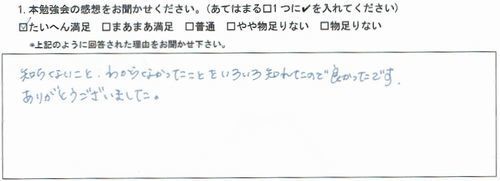 1. 本勉強会の感想をお聞かせください。(あてはまる□1つに✔を入れてください)
☑たいへん満足 □まあまあ満足 □普通 □やや物足りない □物足りない
*上記のように回答された理由をお聞かせ下さい。
知らないこと、わからなかったことをいろいろ知れたので良かったです。
ありがとうございました。